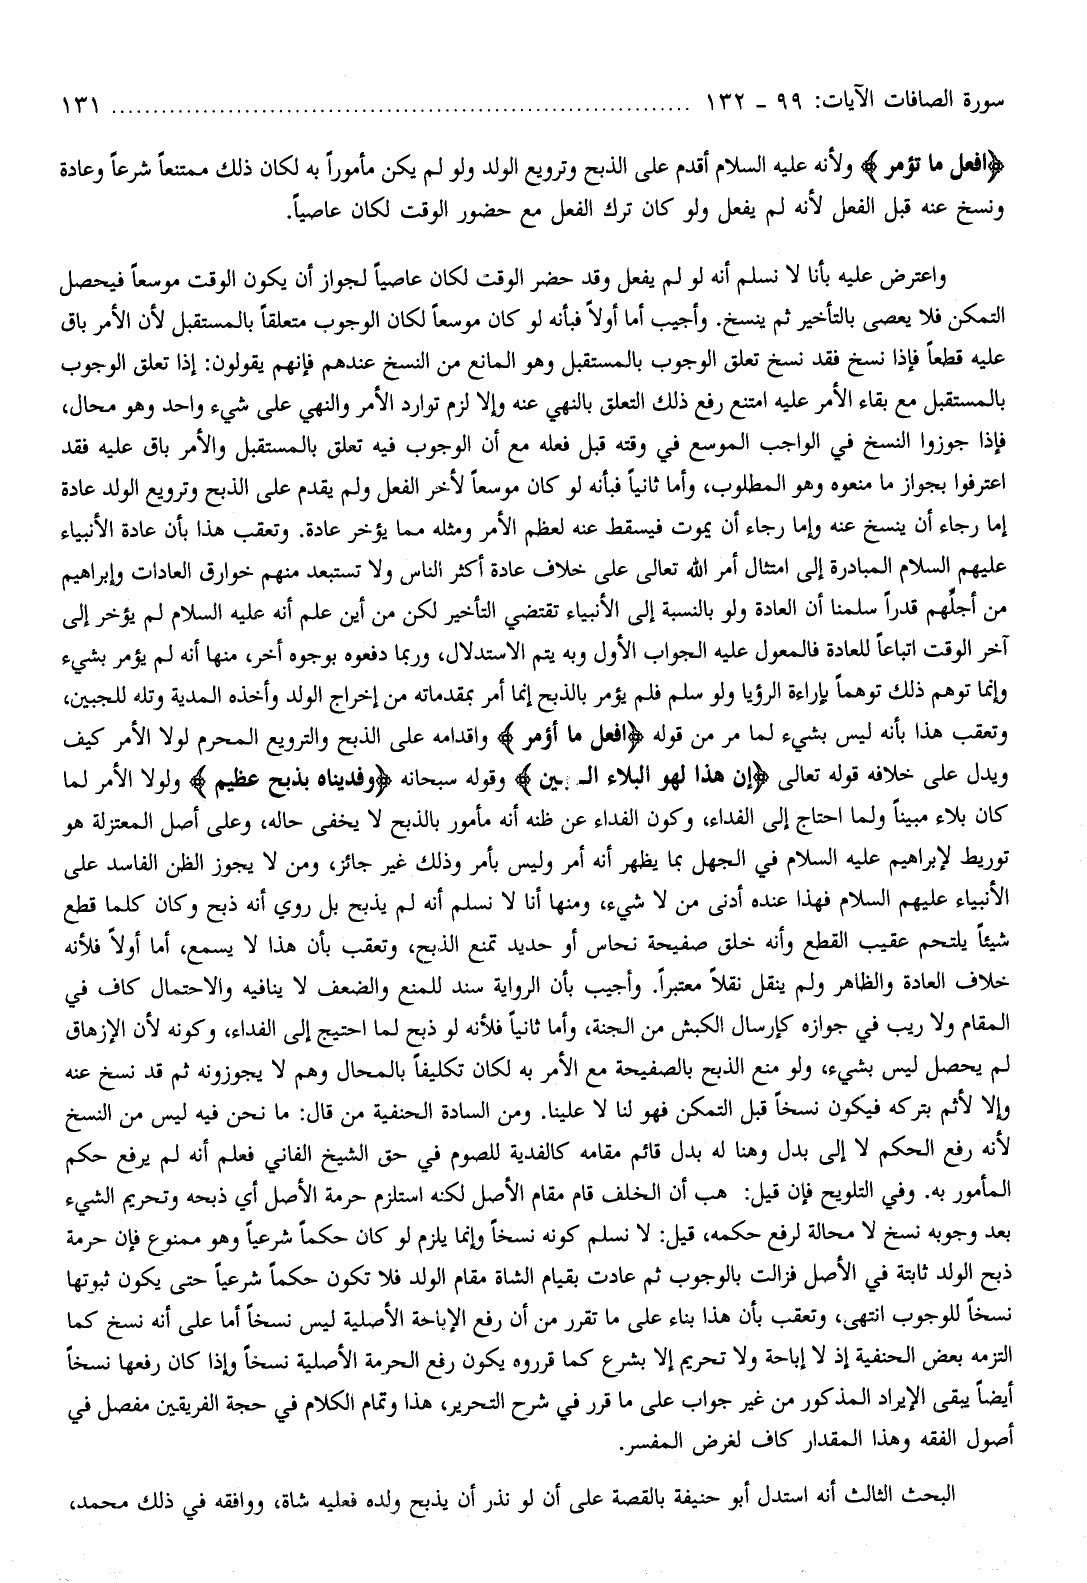 سورة الصافات الآيات: ٩٩ ـ ١٣٢ ........................................................................ ١٣١
﴿افعل ما تؤمر﴾ ولأنه عليه السلام أقدم على الذبح وترويع الولد ولو لم يكن مأموراً به لكان ذلك ممتنعاً شرعاً وعادة
ونسخ عنه قبل الفعل لأنه لم يفعل ولو كان ترك الفعل مع حضور الوقت لكان عاصياً.
واعترض عليه بأنا لا نسلم أنه لو لم يفعل وقد حضر الوقت لكان عاصياً لجواز أن يكون الوقت موسعاً فيحصل
التمكن فلا يعصى بالتأخير ثم ينسخ. وأجيب أما أولاً فبأنه لو كان موسعاً لكان الوجوب متعلقاً بالمستقبل لأن الأمر باق
عليه قطعاً فإذا نسخ فقد نسخ تعلق الوجوب بالمستقبل وهو المانع من النسخ عندهم فإنهم يقولون: إذا تعلق الوجوب
بالمستقبل مع بقاء الأمر عليه امتنع رفع ذلك التعلق بالنهي عنه وإلا لزم توارد الأمر والنهي على شيء واحد وهو محال،
فإذا جوزوا النسخ في الواجب الموسع في وقته قبل فعله مع أن الوجوب فيه تعلق بالمستقبل والأمر باق عليه فقد
اعترفوا بجواز ما منعوه وهو المطلوب، وأما ثانياً فبأنه لو كان موسعاً لأخر الفعل ولم يقدم على الذبح وترويع الولد عادة
إما رجاء أن ينسخ عنه وإما رجاء أن يموت فيسقط عنه لعظم الأمر ومثله مما يؤخر عادة. وتعقب هذا بأن عادة الأنبياء
عليهم السلام المبادرة إلى امتثال أمر الله تعالى على خلاف عادة أكثر الناس ولا تستبعد منهم خوارق العادات وإبراهيم
من أجلّهم قدراً سلمنا أن العادة ولو بالنسبة إلى الأنبياء تقتضي التأخير لكن من أين علم أنه عليه السلام لم يؤخر إلى
آخر الوقت اتباعاً للعادة فالمعول عليه الجواب الأول وبه يتم الاستدلال، وربما دفعوه بوجوه أخر، منها أنه لم يؤمر بشيء
وإنما توهم ذلك توهماً بإراءة الرؤيا ولو سلم فلم يؤمر بالذبح إنما أمر بمقدماته من إخراج الولد وأخذه المدية وتله للجبين،
وتعقب هذا بأنه ليس بشيء لما مر من قوله ﴿افعل ما أؤمر﴾ واقدامه على الذبح والترويع المحرم لولا الأمر كيف
ويدل على خلافه قوله تعالى ﴿إن هذا لهو البلاء المبين﴾ وقوله سبحانه ﴿وفديناه بذبح عظيم﴾ ولولا الأمر لما
كان بلاء مبيناً ولما احتاج إلى الفداء، وكون الفداء عن ظنه أنه مأمور بالذبح لا يخفى حاله، وعلى أصل المعتزلة هو
توريط لإبراهيم عليه السلام في الجهل بما يظهر أنه أمر وليس بأمر وذلك غير جائز، ومن لا يجوز الظن الفاسد على
الأنبياء عليهم السلام فهذا عنده أدنى من لا شيء، ومنها أنا لا نسلم أنه لم يذبح بل روي أنه ذبح وكان كلما قطع
شيئاً يلتحم عقيب القطع وأنه خلق صفيحة نحاس أو حديد تمنع الذبح، وتعقب بأن هذا لا يسمع، أما أولاً فلأنه
خلاف العادة والظاهر ولم ينقل نقلاً معتبراً. وأجيب بأن الرواية سند للمنع والضعف لا ينافيه والاحتمال كاف في
المقام ولا ريب في جوازه كإرسال الكبش من الجنة، وأما ثانياً فلأنه لو ذبح لما احتيج إلى الفداء، وكونه لأن الإزهاق
لم يحصل ليس بشيء، ولو منع الذبح بالصفيحة مع الأمر به لكان تكليفاً بالمحال وهم لا يجوزونه ثم قد نسخ عنه
وإلا لأثم بتركه فيكون نسخاً قبل التمكن فهو لنا لا علينا. ومن السادة الحنفية من قال: ما نحن فيه ليس من النسخ
لأنه رفع الحكم لا إلى بدل وهنا له بدل قائم مقامه كالفدية للصوم في حق الشيخ الفاني فعلم أنه لم يرفع حكم
المأمور به. وفي التلويح فإن قيل: هب أن الخلف قام مقام الأصل لكنه استلزم حرمة الأصل أي ذبحه وتحريم الشيء
بعد وجوبه نسخ لا محالة لرفع حكمه، قيل: لا نسلم كونه نسخاً وإنما يلزم لو كان حكماً شرعياً وهو ممنوع فإن حرمة
ذبح الولد ثابتة في الأصل فزالت بالوجوب ثم عادت بقيام الشاة مقام الولد فلا تكون حكماً شرعياً حتى يكون ثبوتها
نسخاً للوجوب انتهى، وتعقب بأن هذا بناء على ما تقرر من أن رفع الإباحة الأصلية ليس نسخاً أما على أنه نسخ كما
التزمه بعض الحنفية إذ لا إباحة ولا تحريم إلا بشرع كما قرروه يكون رفع الحرمة الأصلية نسخاً وإذا كان رفعها نسخاً
أيضاً يبقى الإيراد المذكور من غير جواب على ما قرر في شرح التحرير، هذا وتمام الكلام في حجة الفريقين مفصل في
أصول الفقه وهذا المقدار كاف لغرض المفسر.
البحث الثالث أنه استدل أبو حنيفة بالقصة على أن لو نذر أن يذبح ولده فعليه شاة، ووافقه في ذلك محمد،